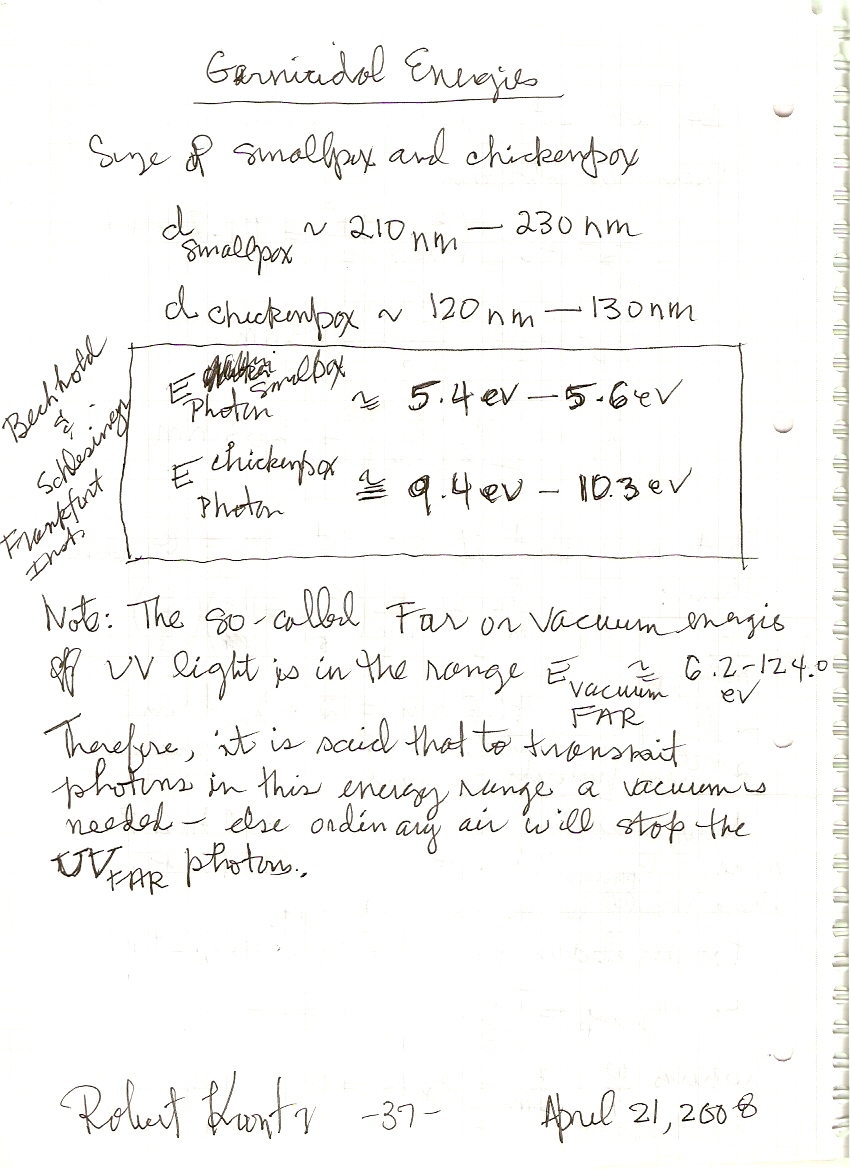 Germicidal Energies
Size of smallpox and chickenpox
d smallpox ~ 210 nm — 230 nm
d chickenpox ~ 120 nm — 130 nm
Bechhold
&
Schlesinger
Frankfurt
Inst.
E smallpox Photon ≅ 5.4 ev — 5.6 ev
E chickenpox Photon ≅ 9.4 ev — 10.3 ev
Note: The so-called Far or Vacuum energies
of UV light is in the range E vacuum FAR ≅ 6.2-124.0 ev
Therefore, it is said that to transmit
photons in this energy range a vacuum is
needed — else ordinary air will stop the
UV FAR photons.
Robert -37- April 21, 2008